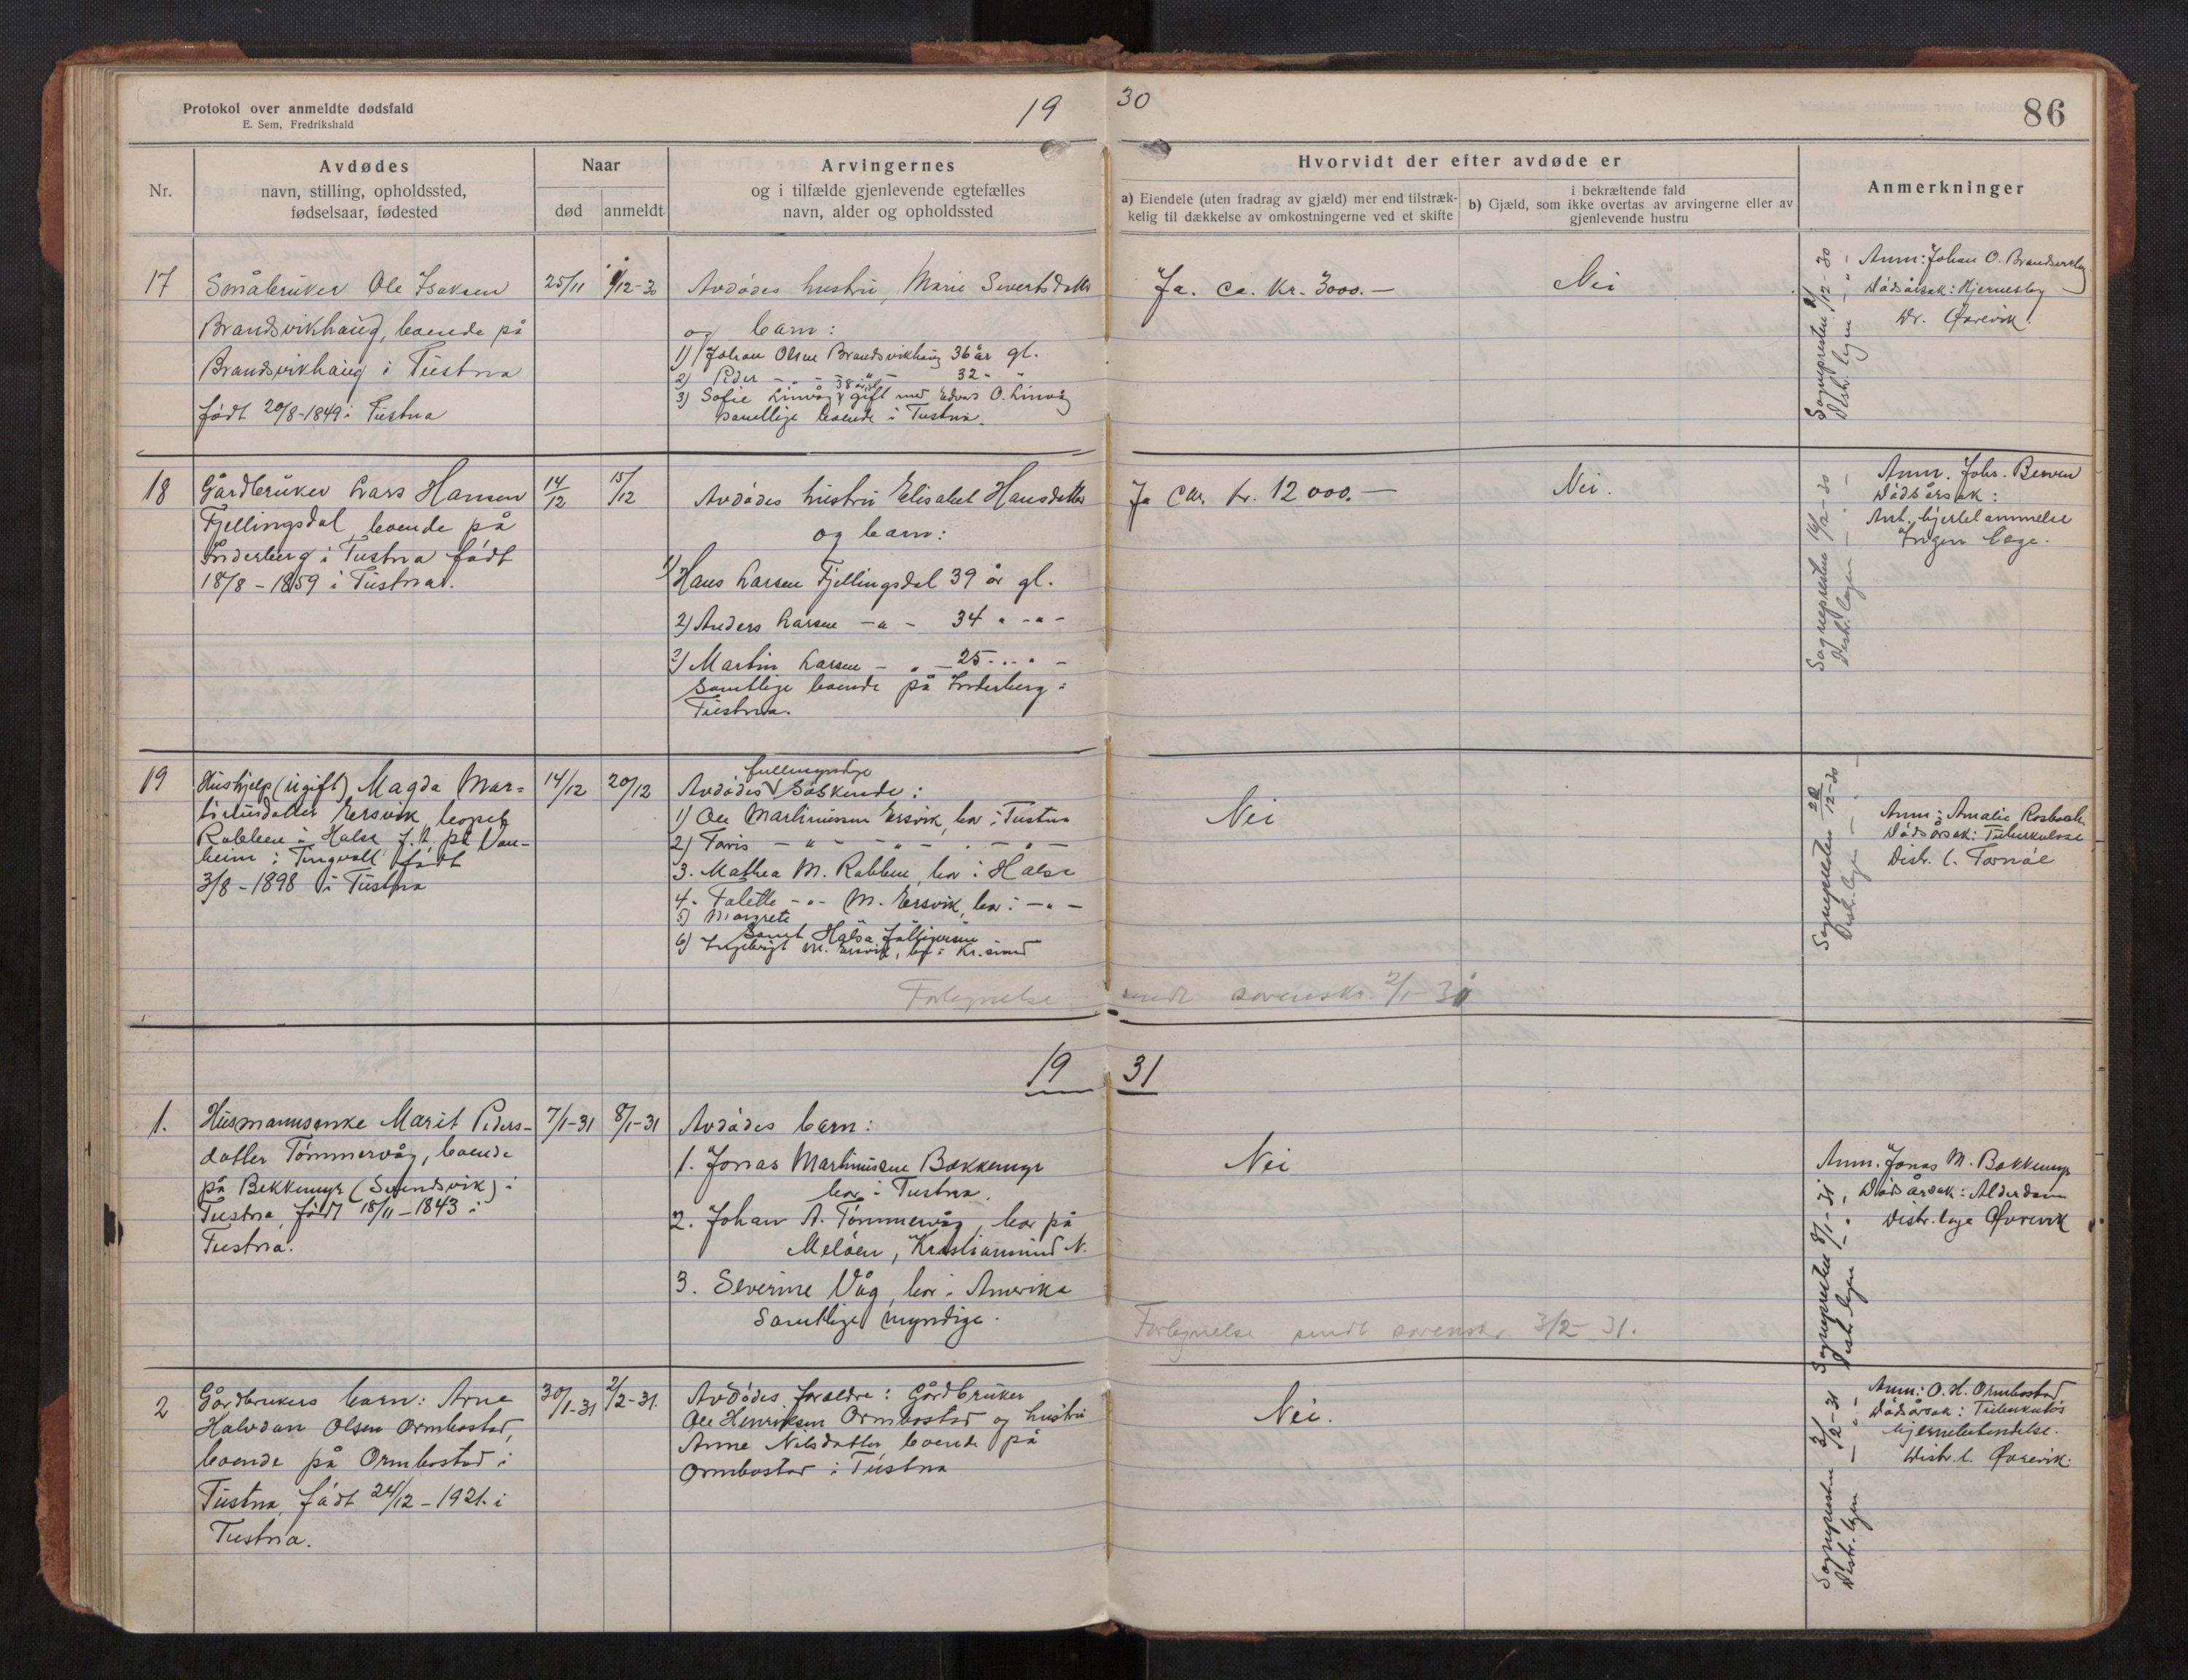 Protokol over anmeldte dødsfald
E. Sem, Fredrikshald
19 30
86
Nr.
Avdødes
navn, stilling, opholdssted,
fødselsaar, fødested
Naar
død
anmeldt
Arvingernes
og i tilfælde gjenlevende egtefælles
navn, alder og opholdssted
Hvorvidt der efter avdøde er
a) Eiendele (uten fradrag av gjæld) mer end tilstræk-
kelig til dækkelse av omkostningerne ved et skifte
i bekræftende fald
b) Gjæld, som ikke overtas av arvingerne eller av
gjenlevende hustru
Anmerkninger
17
Småbruker Ole Isaksen
Brandsvikhaug, boende på
Brandsvikhaug i Tustna
født 20/8-1849 i Tustna
25/11
9/12-30
Avdødes hustru, Marie Sivertsdatter
og barn:
1) Johan Olsen Brandsvikhaug 36 år gl.
2) Peder - " - 32 " "
38 år gl.
3) Sofie Linvåg gift med Edvard O. Linvåg
samtlige boende i Tustna.
Ja. ca. Kr. 3000.—
Nei
Sogнepresten 9/12-30
Distr. legen - " -
Anm: Johan O. Brandsvikhaug
Dødsårsak: Hjerneslag
Dr. Øvervik.
18
Gårdbruker Lars Hansen
Fjellingsdal boende på
Inderberg i Tustna født
18/8-1859 i Tustna.
14/12
15/12
Avdødes hustru Elisabet Hansdatter
og barn:
1) Hans Larsen Fjellingsdal 39 år gl.
2) Anders Larsen - " - 34 " - " -
3) Martin Larsen - " - 25 - " -
Samtlige boende på Inderberg i
Tustna.
Ja ca. kr. 12 000.—
Nei.
Sognepresten 16/12-30
Distr. legen - " -
Anm. Johs. Berven
Dødsårsak:
Ant. hjertelammelse
Ingen læge.
19
Hushjelp (ugift) Magda Mar-
tinusdatter Ersvik, bopel
Rabben i Halsa f.t. på Van-
heim i Tingvoll født
3/8-1898 i Tustna
14/12
20/12
fullmyndige
Avdødes søskende:
1) Ole Martinussen Ersvik, bor i Tustna
2) - " - - " - - " -
3. Mathea M. Rabben, bor i Halsa
4. - " - M. Ersvik, bor i - " -
5) Margrete
samt Halsa
6) Ingebrigt M. Ersvik, bor i Kr.sund
Nei
Sognepresten 20/12-30
Distr. legen - " -
Anm: Amalie
Dødsårsak: Tuberkulose
Distr. l. Tornåe
Fortegnelse sendt sorenskr. 2/1-30
19 31
1.
Husmannsenke Marit Peders-
datter Tømmervåg, boende
på Bekkemyr (Svendsvik) i
Tustna, født 18/11-1843 i
Tustna.
7/1-31
8/1-31
Avdødes barn:
1. Jonas Martinussen Bekkemyr
bor i Tustna.
2. Johan A. Tømmervåg, bor på
Meløen, Kristiansund N.
3. Severine Våg, bor i Amerika
Samtlige myndige.
Nei
Fortegnelse sendt sorenskr. 3/2-31.
Sognepresten 8/1-31
Distr. legen - " -
Anm. Jonas M. Bekkemyr
Dødsårsak: Alderdom
Distr. læge Øvervik
2
Gårdbrukers barn: Arne
Halvdan Olsen Ormbostad,
boende på Ormbostad i
Tustna, født 24/12-1921 i
Tustna.
30/1-31
2/2-31.
Avdødes foreldre: Gårdbruker
Ole Henriksen Ormbostad og hustru
Anne Nilsdatter boende på
Ormbostad i Tustna
Nei.
Sognepresten 2/2-31
Distr. legen - " -
Anm: O. H. Ormbostad
Dødsårsak: Tuberkuløs
hjernebetendelse.
Distr. l. Øvervik.